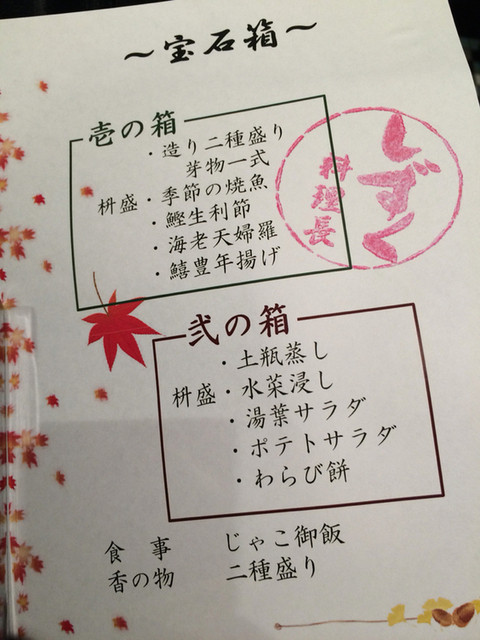 ～宝石箱～
壱の箱
・造り二種盛り
芽物一式
枡盛・季節の焼魚
・鰹生利節
・海老天婦羅
・鱚豊年揚げ
しずく
料理長
弐の箱
・土瓶蒸し
枡盛・水菜浸し
・湯葉サラダ
・ポテトサラダ
・わらび餅
食事 じゃこ御飯
香の物 二種盛り